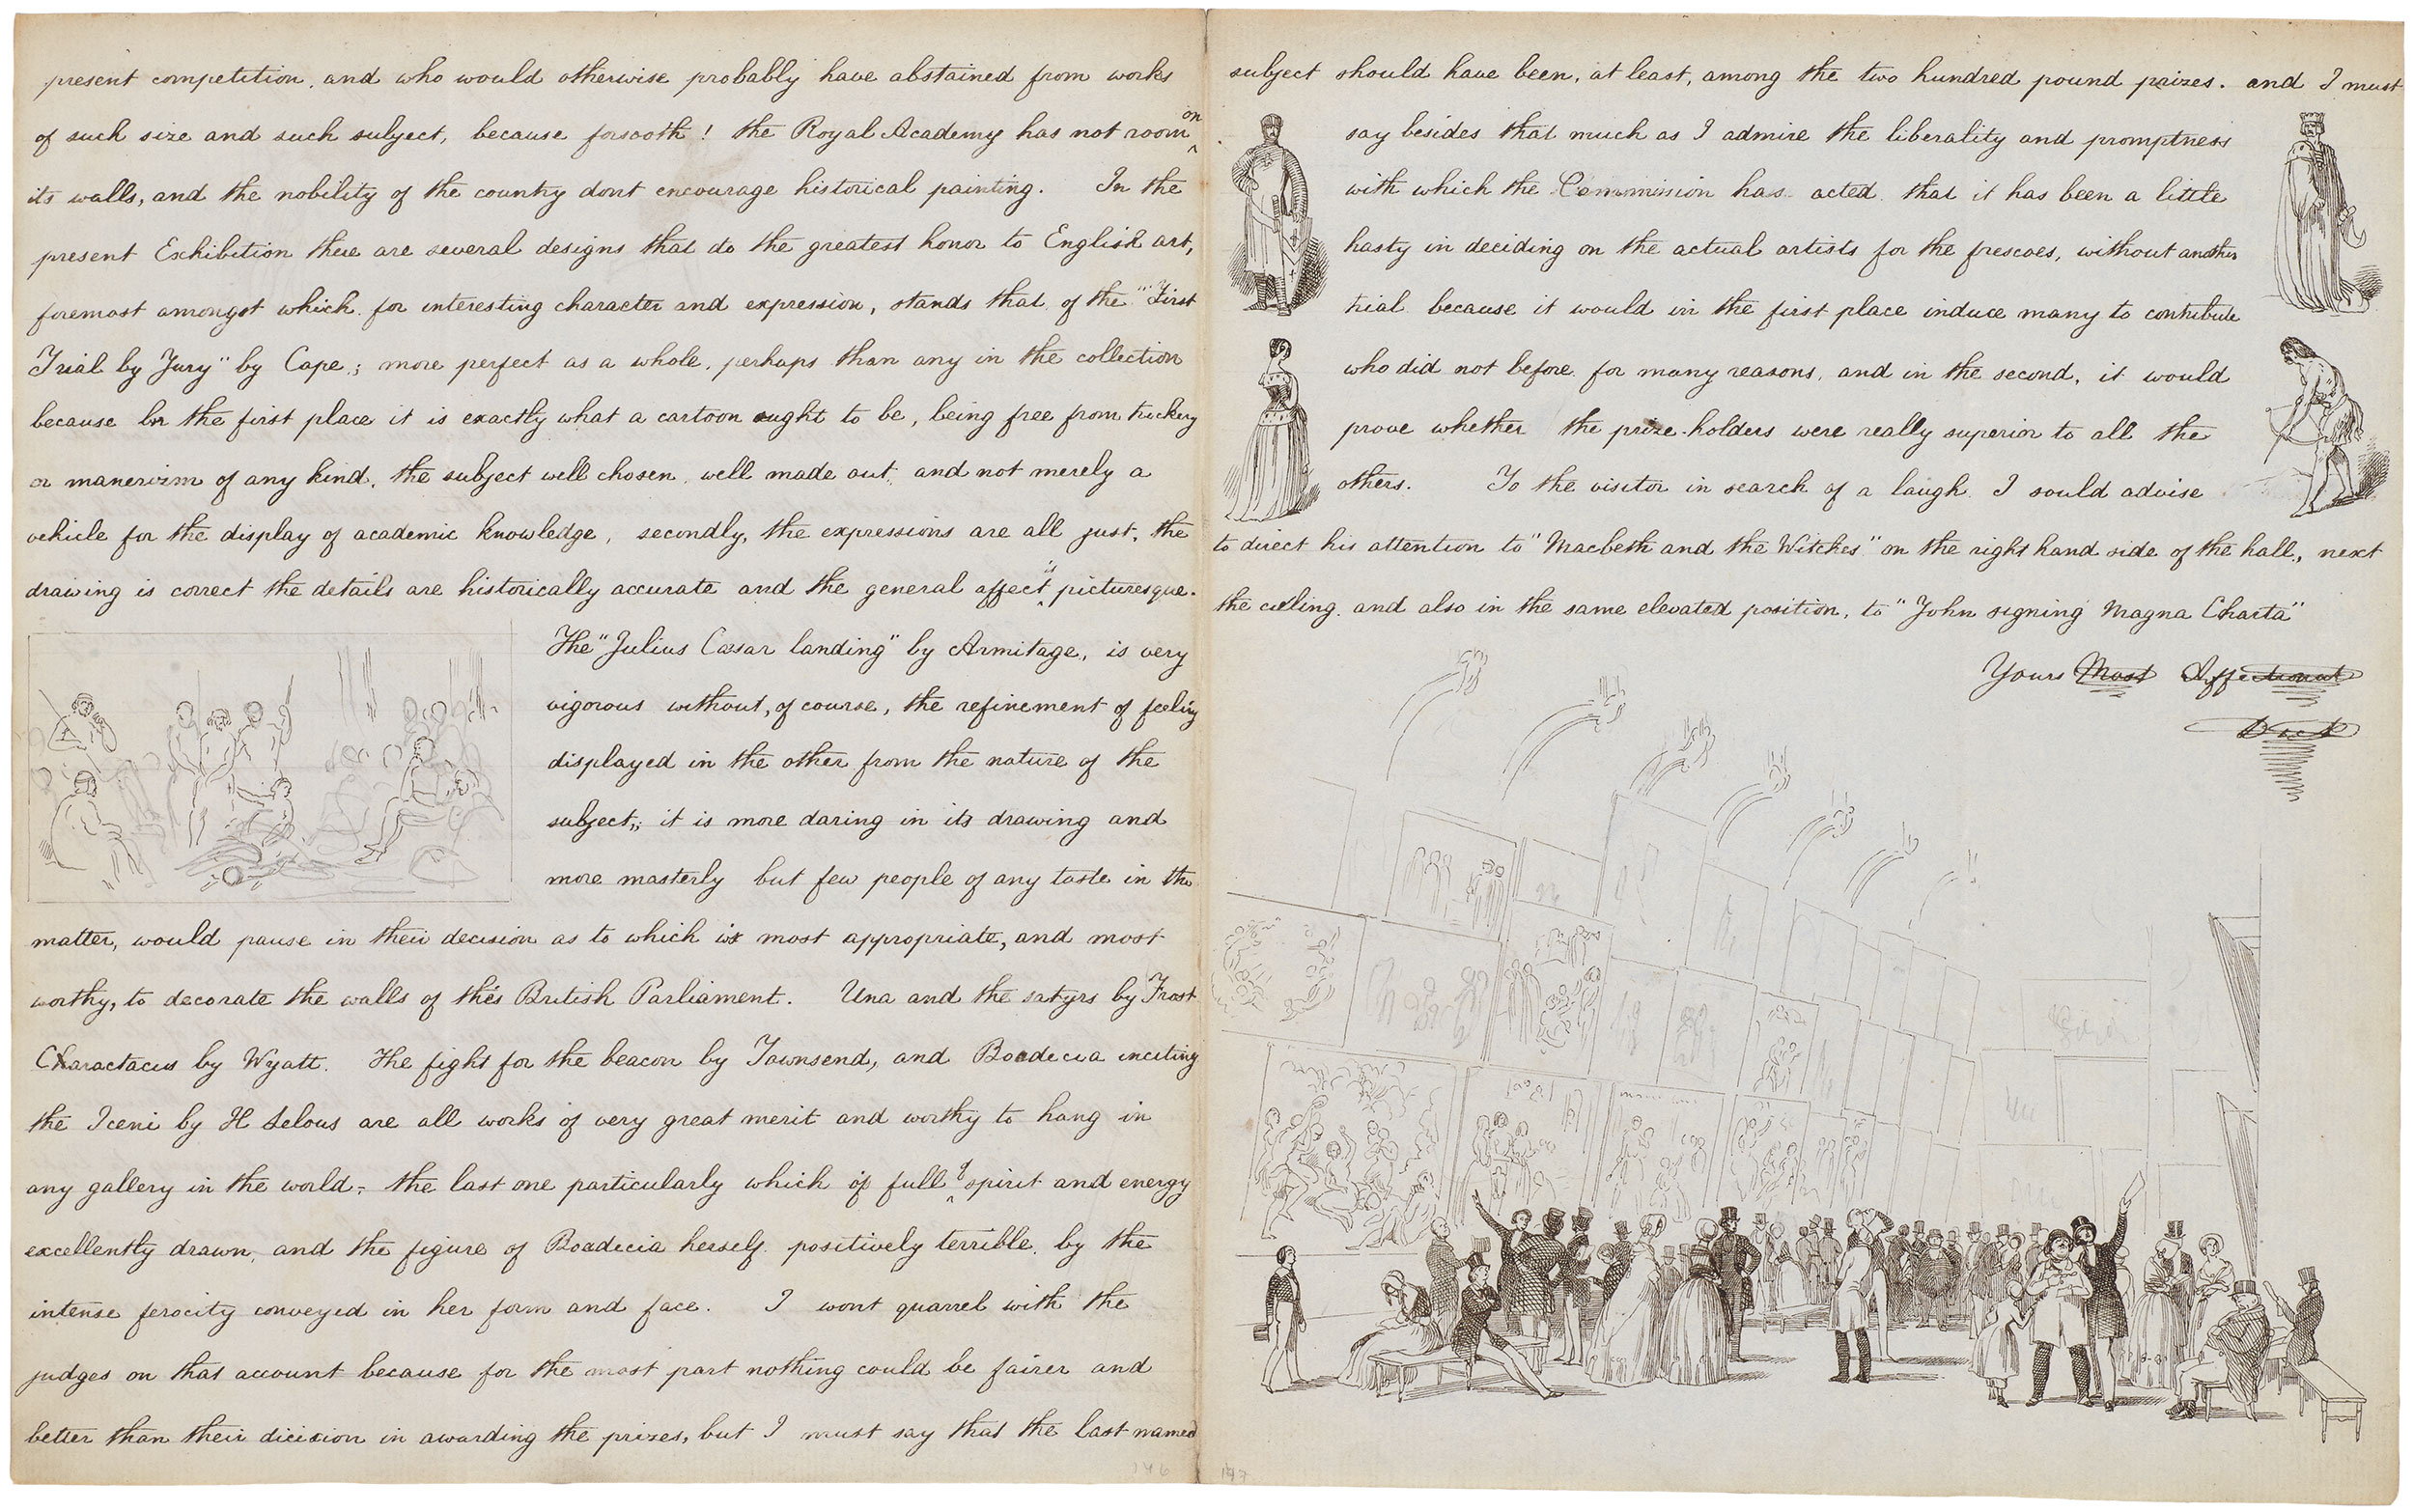 present competition, and who would otherwise probably have abstained from works
of such size and such subject, because forsooth! the Royal Academy has not room on
its walls, and the nobility of the country dont encourage historical painting. In the
present Exhibition there are several designs that do the greatest honor to English art,
foremost amongst which for interesting character and expression, stands that of the "First
Trial by Jury" by Cape; more perfect as a whole, perhaps than any in the collection
because in the first place it is exactly what a cartoon ought to be, being free from trickery
or manerizm of any kind, the subject well chosen, well made out, and not merely a
vehicle for the display of academic knowledge, secondly, the expressions are all just, the
drawing is correct the details are historically accurate and the general affect is picturesque.
The "Julius Cæsar landing" by Armitage, is very
vigorous without, of course, the refinement of feeling
displayed in the other from the nature of the
subject; it is more daring in its drawing and
more masterly but few people of any taste in the
matter, would pause in their decision as to which is most appropriate, and most
worthy, to decorate the walls of the British Parliament. Una and the satyrs by Frost
Charactacus by Wyatt. The fight for the beacon by Townsend, and Boadecia inciting
the Iceni by H Selous are all works of very great merit and worthy to hang in
any gallery in the world; the last one particularly which is full of spirit and energy
excellently drawn, and the figure of Boadecia herself positively terrible, by the
intense ferocity conveyed in her form and face. I wont quarrel with the
judges on that account because for the most part nothing could be fairer and
better than their dicision in awarding the prizes, but I must say that the last named
146
subject should have been, at least, among the two hundred pound prizes. and I must
say besides that much as I admire the liberality and promptness
with which the Commission has acted that it has been a little
hasty in deciding on the actual artists for the frescoes, without another
trial because it would in the first place induce many to contribute
who did not before for many reasons, and in the second, it would
prove whether the prize-holders were really superior to all the
others. To the visitor in search of a laugh I sould advise
to direct his attention to "Macbeth and the Witches" on the right hand side of the hall, next
the cieling, and also in the same elevated position, to "John signing Magna Charta"
Yours Most Affectionat
Dick
147